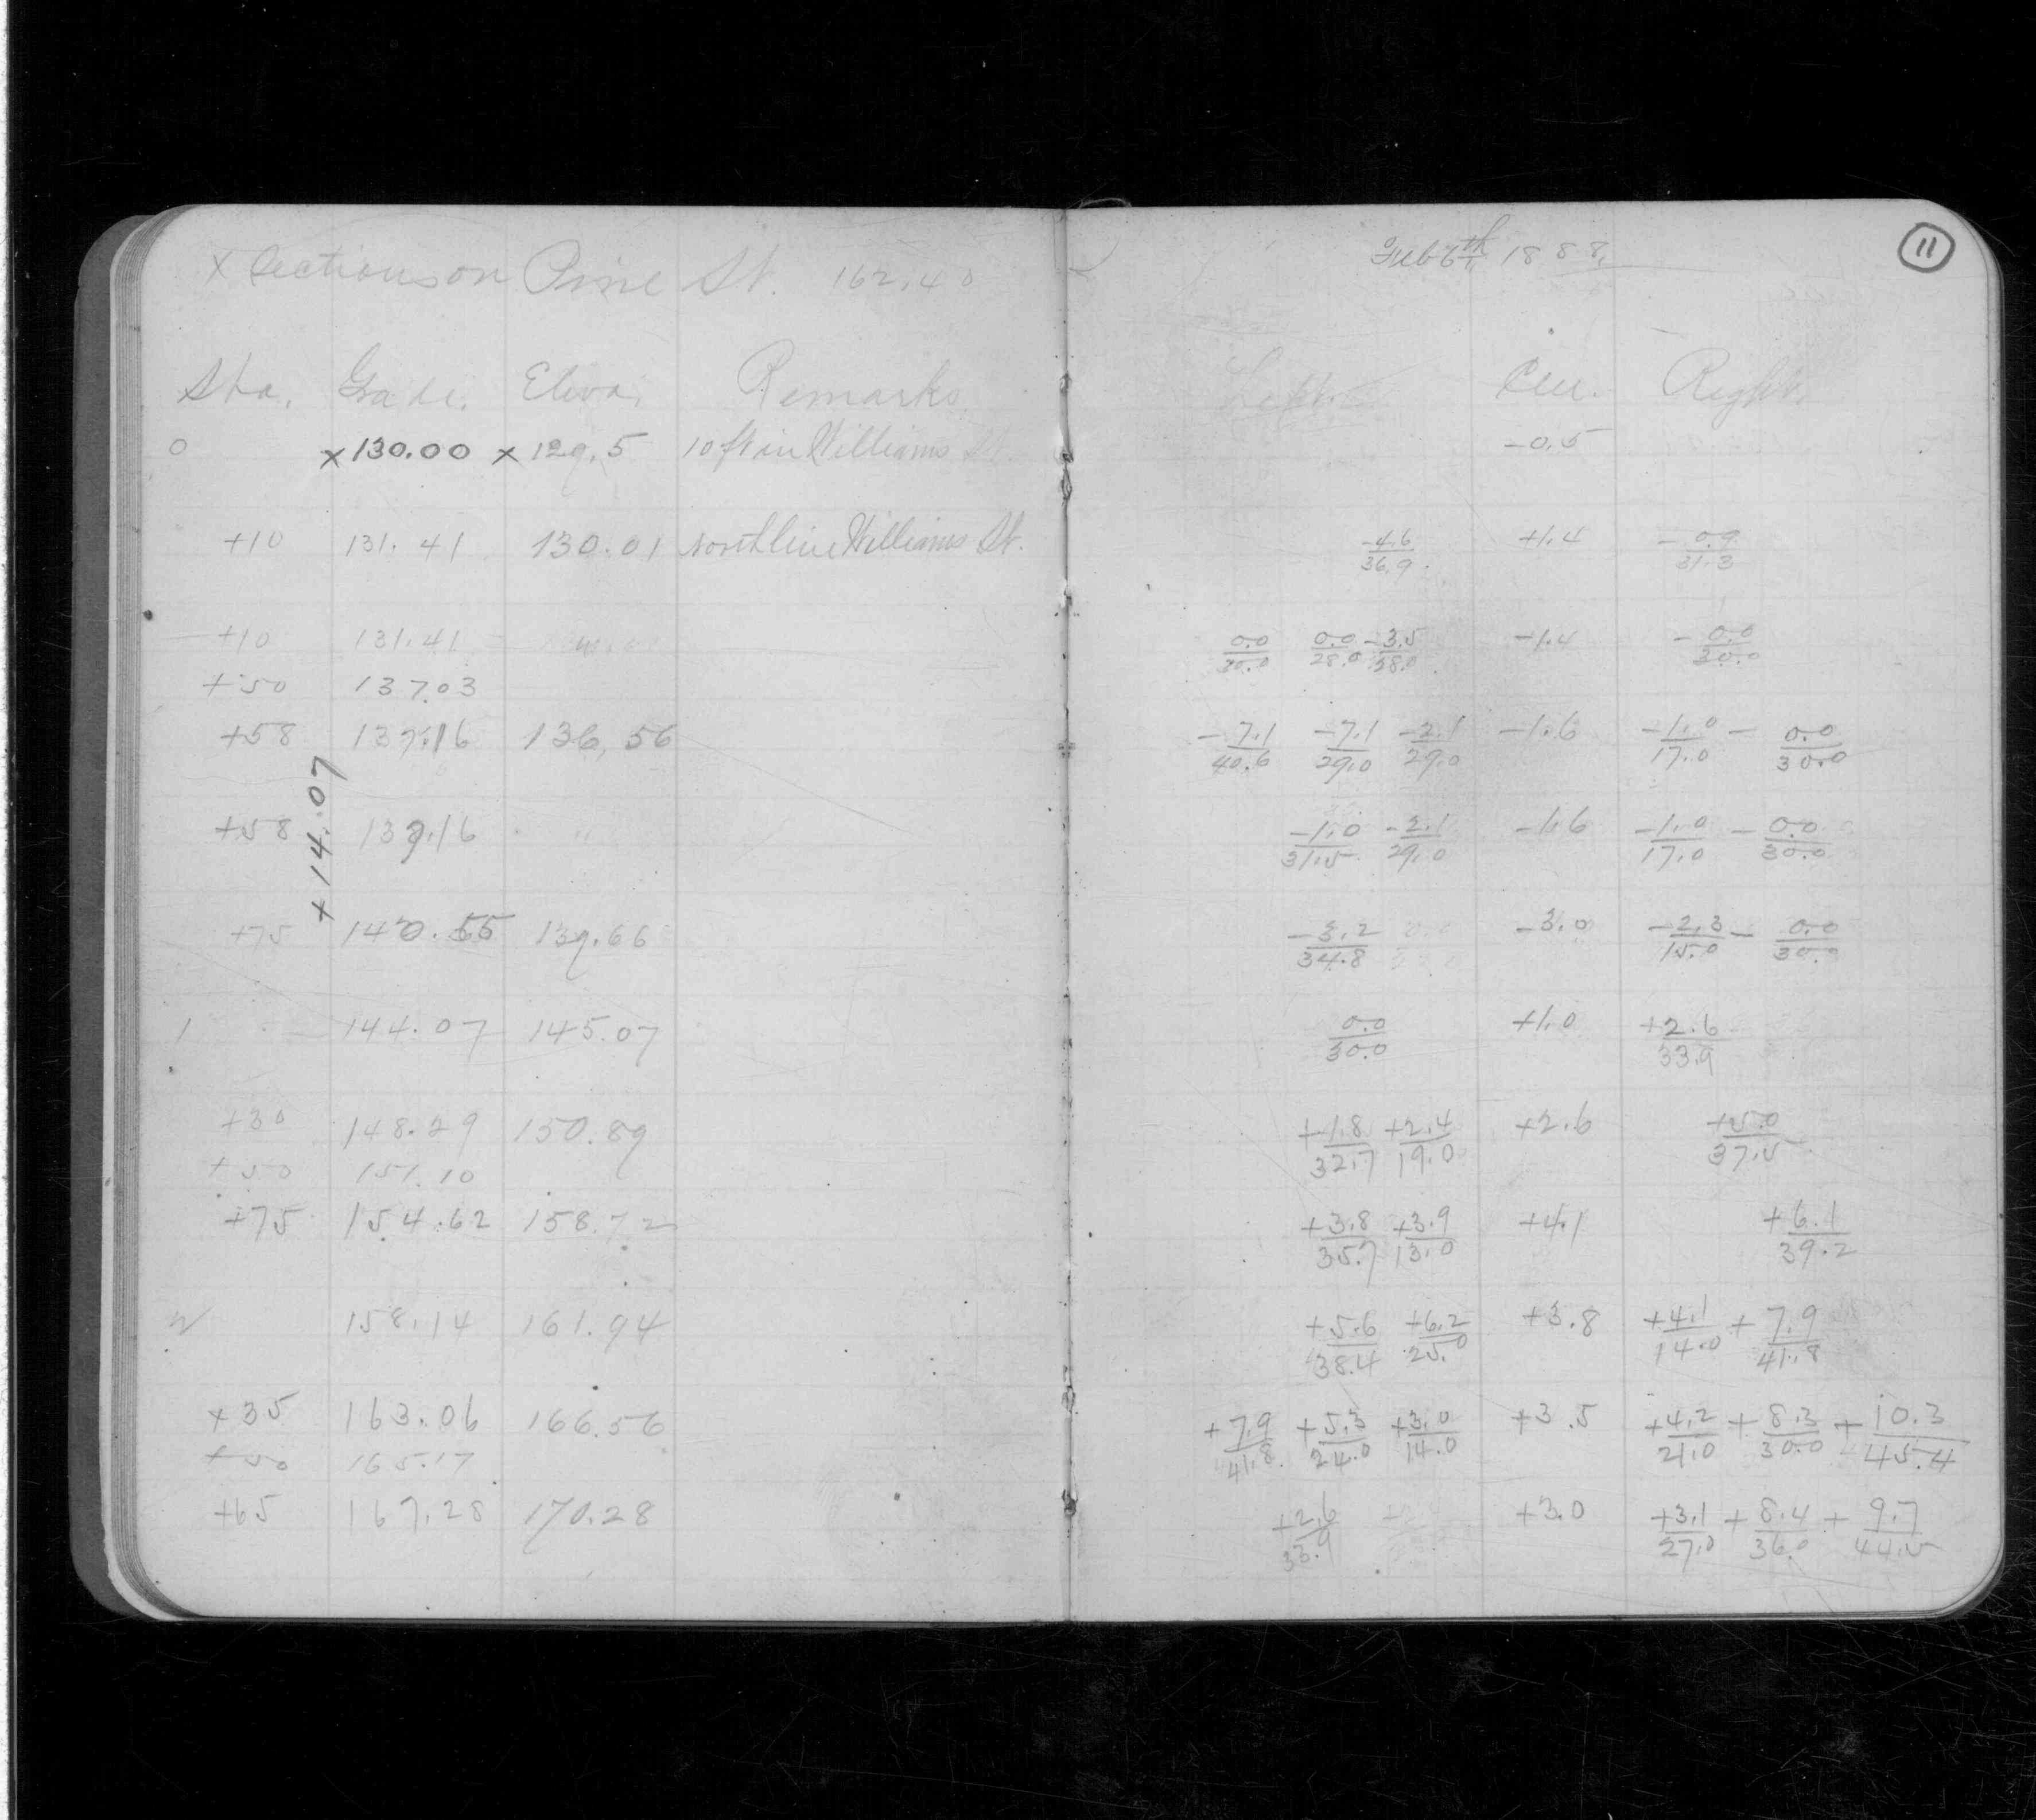 X Sections on Pine St. 162.40
Sta. Grade. Eleva. Remarks.
0 x 130.00 x 129.5 10 ft in Williams St.
+10 131.41 130.01 North line Williams St.
+10 131.41
+50 137.03
+58 136.56
+14.07
+58
+75 140.55 139.66
1 144.07 145.07
+30 148.29 150.89
+50 151.10
+75 154.62 158.72
2 158.14 161.94
+35 163.06 166.56
+50 165.17
+65 167.28 170.28
Feb 6th 1888.
11
Left. Cen. Right.
-0.5
-4.6/36.9 +1.4 -0.9/31.3
0.0/30.0 0.0/28.0 -3.5/28.0 -1.4 -0.0/30.0
-7.1/40.6 -7.1/29.0 -2.1/29.0 -1.6 -1.0/17.0 - 0.0/30.0
-1.0/31.5 -2.1/29.0 -1.6 -1.0/17.0 - 0.0/30.0
-3.2/34.8 -3.0 -2.3/15.0 - 0.0/30.0
0.0/30.0 +1.0 +2.6/33.9
+1.8/32.7 +2.4/19.0 +2.6 +5.0/37.5
+3.8/35.7 +3.9/13.0 +4.1 +6.1/39.2
+5.6/38.4 +6.2/25.0 +3.8 +4.1/14.0 + 7.9/41.8
+7.9/41.8 +5.3/24.0 +3.0/14.0 +3.5 +4.2/21.0 + 8.3/30.0 + 10.3/45.4
+2.6/33.9 +3.0 +3.1/27.0 + 8.4/36.0 + 9.7/44.5